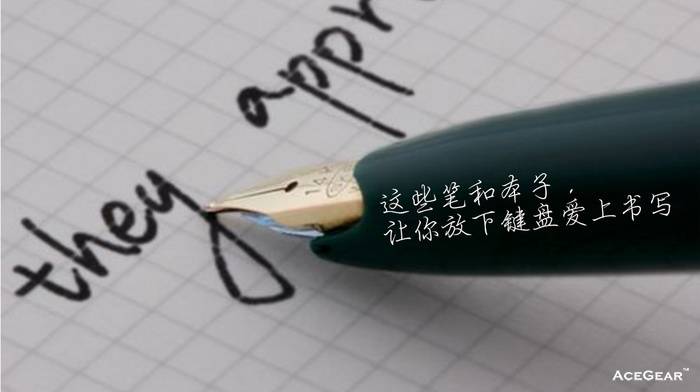 they appr
这些笔和本子，
让你放下键盘爱上书写
ACEGEAR™